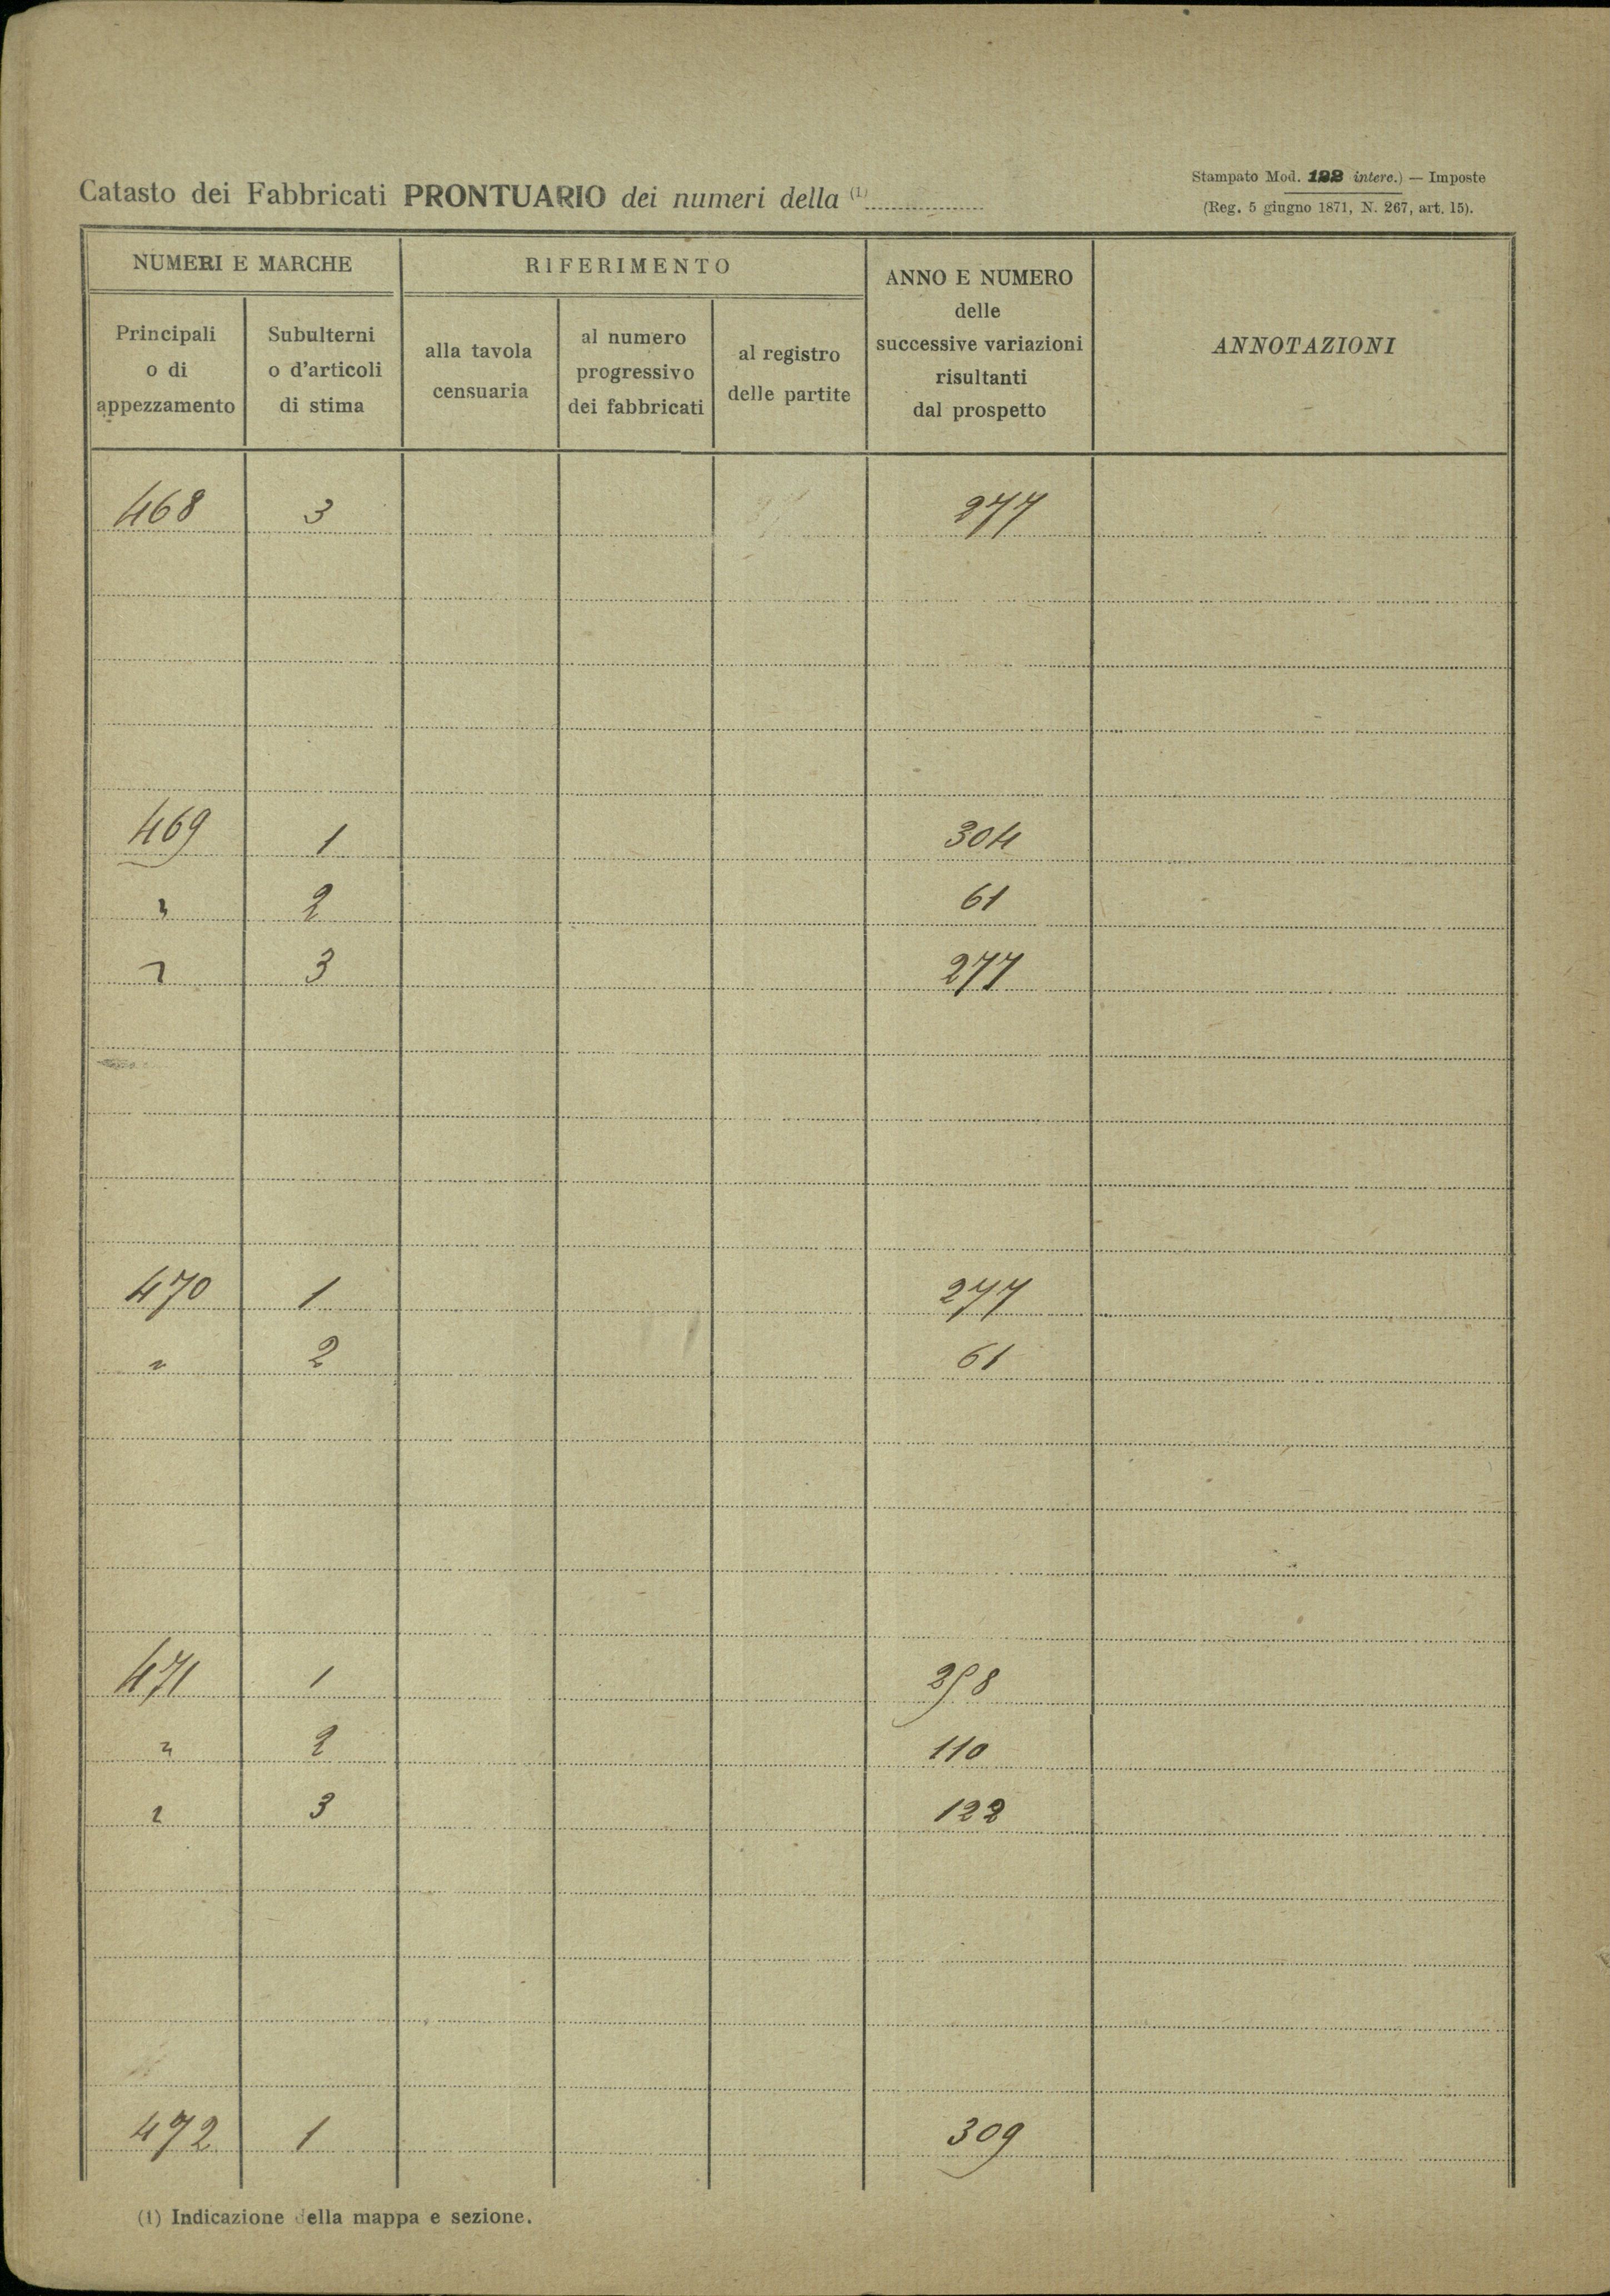 Catasto dei Fabbricati PRONTUARIO dei numeri della (1)
Stampato Mod. 122 interc.) — Imposte
(Reg. 5 giugno 1871, N. 267, art. 15).
NUMERI E MARCHE
RIFERIMENTO
ANNO E NUMERO
delle
successive variazioni
risultanti
dal prospetto
ANNOTAZIONI
Principali
o di
appezzamento
Subulterni
o d'articoli
di stima
alla tavola
censuaria
al numero
progressivo
dei fabbricati
al registro
delle partite
468 3 277
469 1 304
" 2 61
" 3 277
470 1 277
" 2 61
471 1
" 2 110
" 3 122
472 1 309
(1) Indicazione della mappa e sezione.